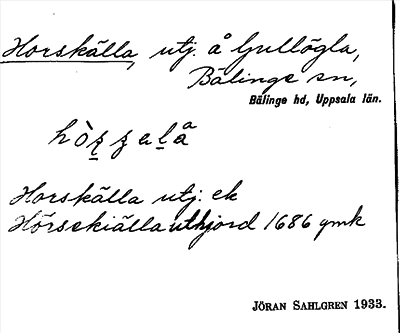 Horskälla, utj. å Ljullögla,
Bälinge sn,
Bälinge hd, Uppsala län.
Horskälla utj: ek
Hörsekiälla uthjord 1686 ymk
JÖRAN SAHLGREN 1933.